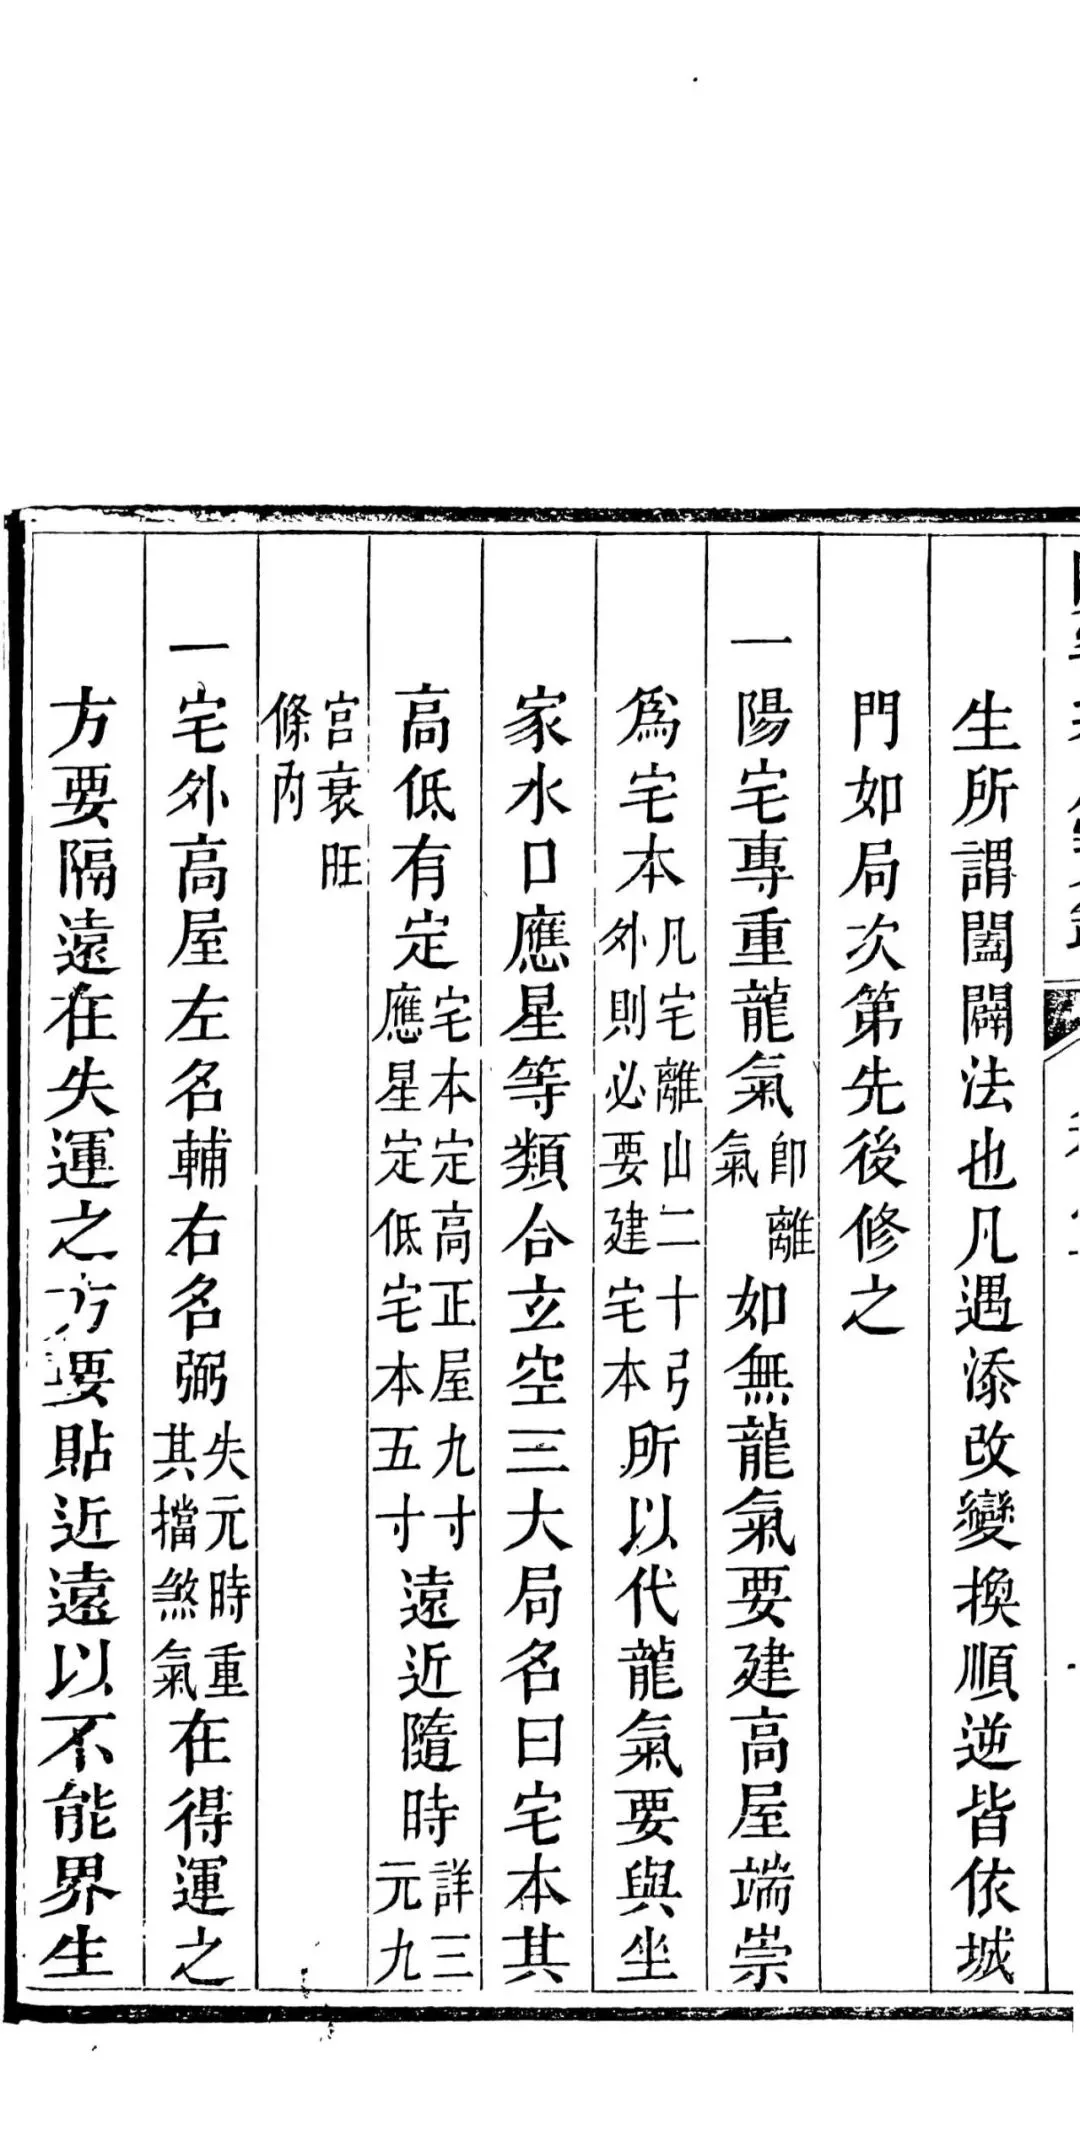 生所謂闔闢法也凡遇添改變換順逆皆依城
門如局次第先後修之
一陽宅專重龍氣即離氣如無龍氣要建高屋端崇
爲宅本凡宅離山二十弓外則必要建宅本所以代龍氣要與坐
家水口應星等類合立空三大局名曰宅本其
高低有定宅本定高正屋九寸應星定低宅本五寸遠近隨時詳三元九
宮衰旺條內
一宅外高屋左名輔右名弼失元時重其擋煞氣在得運之
方要隔遠在失運之方要貼近遠以不能界生